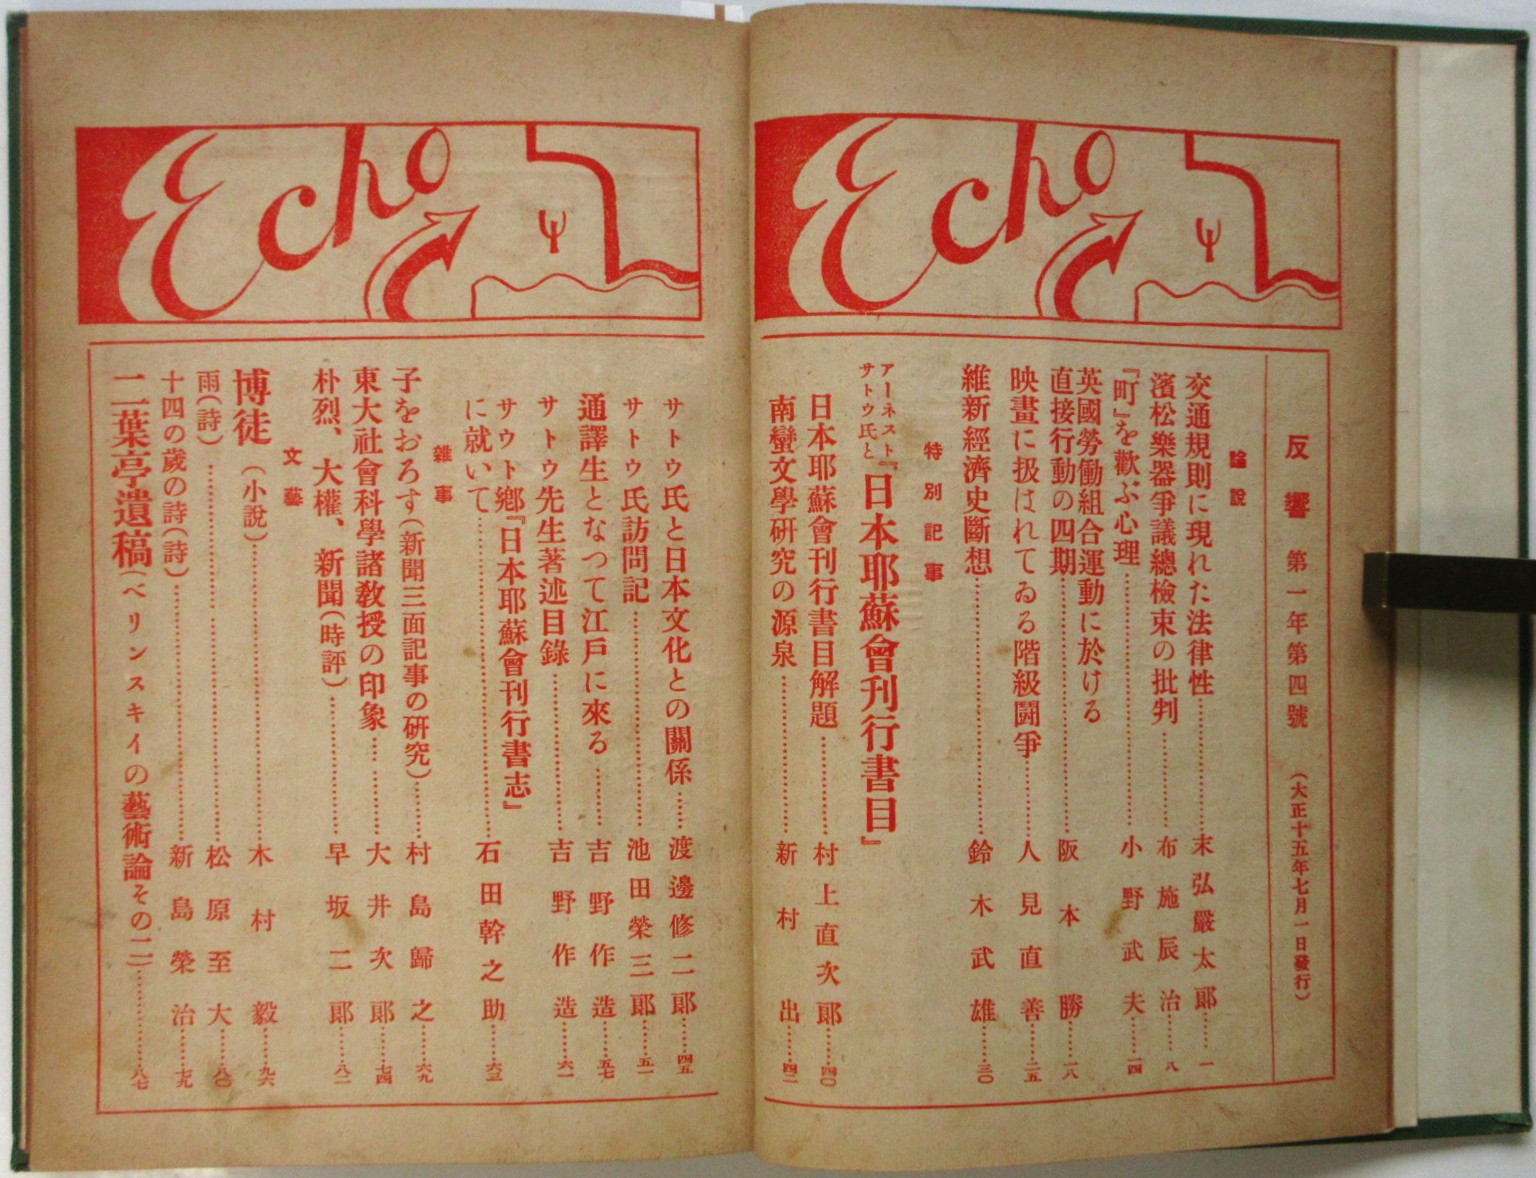 Echo
反響 第一年第四號 (大正十五年七月一日發行)
論說
交通規則に現れた法律性……末弘嚴太郎……一
濱松樂器爭議總檢束の批判……布施辰治……八
『町』を歡ぶ心理……小野武夫……一四
英國勞働組合運動に於ける
直接行動の四期……阪本勝……一八
映畫に扱はれてゐる階級鬪爭……人見直善……二五
維新經濟史斷想……鈴木武雄……三〇
特別記事
アーネスト
サトウ氏と
『日本耶蘇會刊行書目』
日本耶蘇會刊行書目解題……村上直次郎……四〇
南蠻文學硏究の源泉……新村出……四二
Echo
サトウ氏と日本文化との關係……渡邊修二郎……四五
サトウ氏訪問記……池田榮三郎……五一
通譯生となつて江戶に來る……吉野作造……五七
サトウ先生著述目錄……吉野作造……六一
サウト鄕『日本耶蘇會刊行書志』
に就いて……石田幹之助……六三
雜事
子をおろす(新聞三面記事の硏究)……村島歸之……六九
東大社會科學諸敎授の印象……大井次郎……七四
朴烈、大權、新聞(時評)……早坂二郎……八二
文藝
博徒(小說)……木村毅……九六
雨(詩)……松原至大……八〇
十四の歲の詩(詩)……新島榮治……七九
二葉亭遺稿(ベリンスキイの藝術論その二)……八七